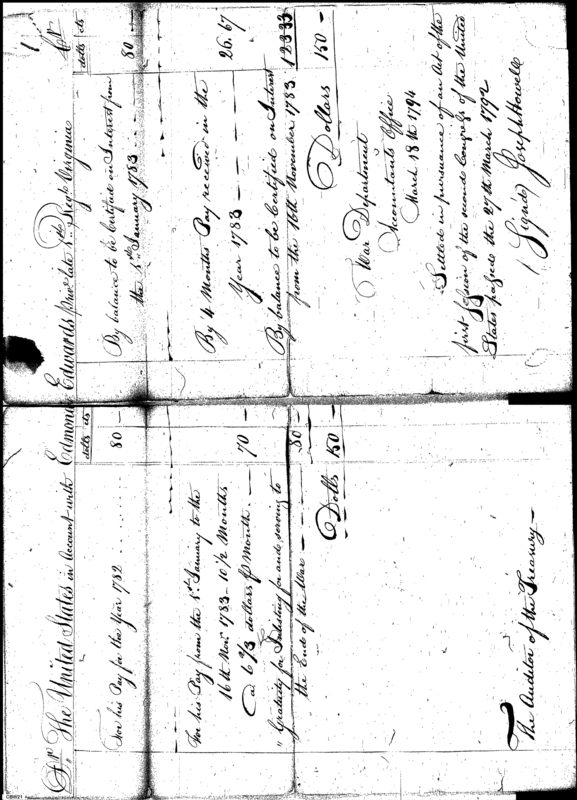 1
Dr. The United States in Account with Edmond Edwards priv.e late 1.st Reg.t Virginia Cr.
dolls cts
For his Pay for the Year 1782 80 —
For his Pay from the 1.st January to the
16th Nov.r 1783 – 10 1/2 Months
@ 6 2/3 dollars ⅌ Month — 70 —
"Gratuity for Inlisting for and serving to
the End of the War — 80 —
Dolls 150 —
The Auditor of the Treasury —
dolls cts
By balance to be Certified on Interest from
the 1.st January 1783 — 80
By 4 Months Pay received in the
Year 1783 — 26.67
By balance to be Certified on Interest
from the 16th November 1783 123.33
Dollars 150 —
War Department
Accountants Office
March 18th 1794
Settled in pursuance of an Act of the
first Session of the second Congress of the United
States passed the 27th March 1792
(Signed) Joseph Howell